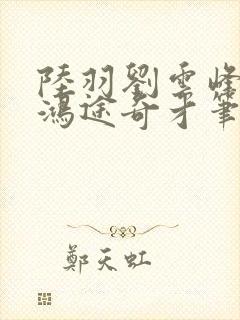 陸羽劉雲峰
鴻途奇才筆
鄭天虹